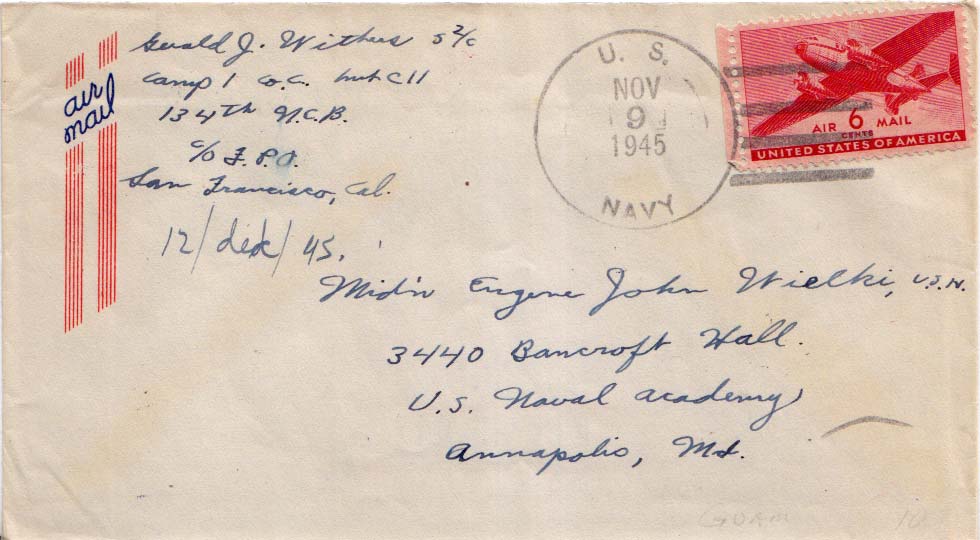 air
mail
Gerald J. Withers S 2/c
Camp 1 Co. C. hut C11
134th N.C.B.
c/o F.P.O.
San Francisco, Cal.
12/dec/45.
U. S.
NOV
9
1945
NAVY
AIR 6 MAIL
CENTS
UNITED STATES OF AMERICA
Mid'n Eugene John Wielki, U.S.N.
3440 Bancroft Hall.
U.S. Naval Academy
Annapolis, Md.
GUAM 10